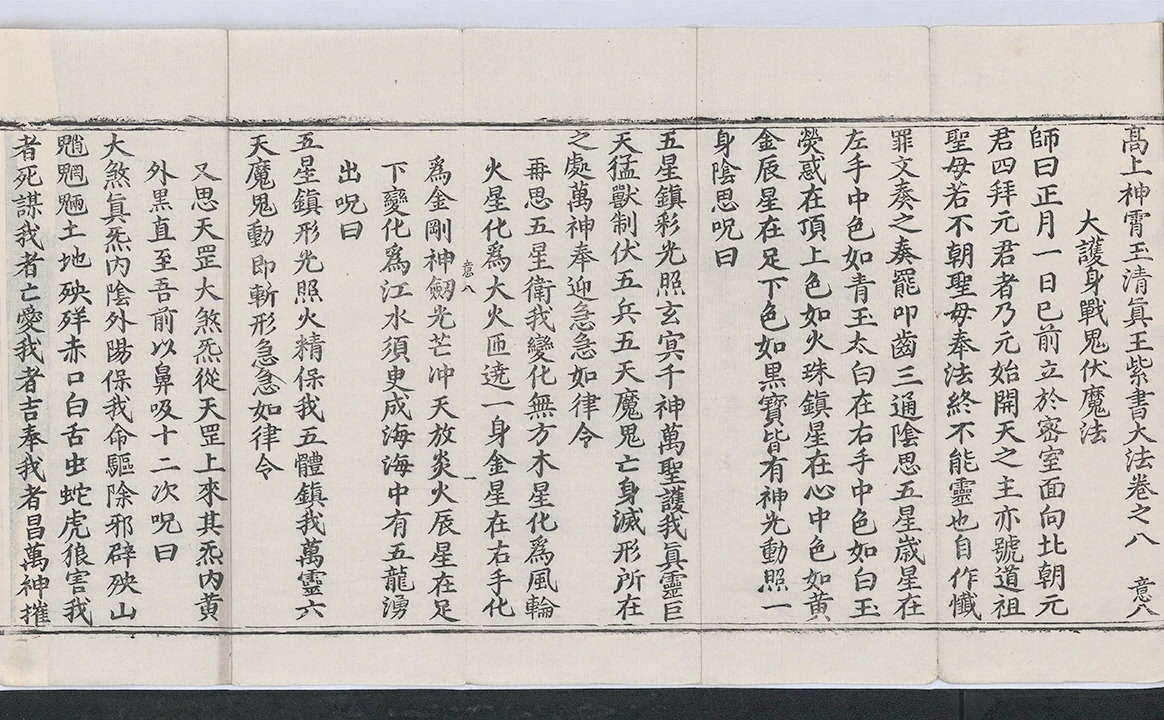 高上神霄玉清眞王紫書大法卷之八 意八
大護身戰鬼伏魔法
師曰正月一日巳前立於密室面向北朝元
君四拜元君者乃元始開天之主亦號道祖
聖母若不朝聖母奉法終不能靈也自作懺
罪文奏之奏罷叩齒三通陰思五星歲星在
左手中色如青玉太白在右手中色如白玉
熒惑在頂上色如火珠鎮星在心中色如黃
金辰星在足下色如黑寶皆有神光動照一
身陰思呪曰
五星鎮彩光照玄冥千神萬聖護我眞靈巨
天猛獸制伏五兵五天魔鬼亡身滅形所在
之處萬神奉迎急急如律令
再思五星衛我變化無方木星化爲風輪
火星化爲大火匝遶一身金星在右手化
意八 一
爲金剛神劒光芒冲天放炎火辰星在足
下變化爲江水須臾成海海中有五龍湧
出呪曰
五星鎮形光照火精保我五體鎮我萬靈六
天魔鬼動即斬形急急如律令
又思天罡大煞炁從天罡上來其炁内黃
外黑直至吾前以鼻吸十二次呪曰
大煞眞炁内陰外陽保我命驅除邪辟殃山
魈魍魎土地殃殍赤口白舌虫蛇虎狼害我
者死謀我者亡愛我者吉奉我者昌萬神摧